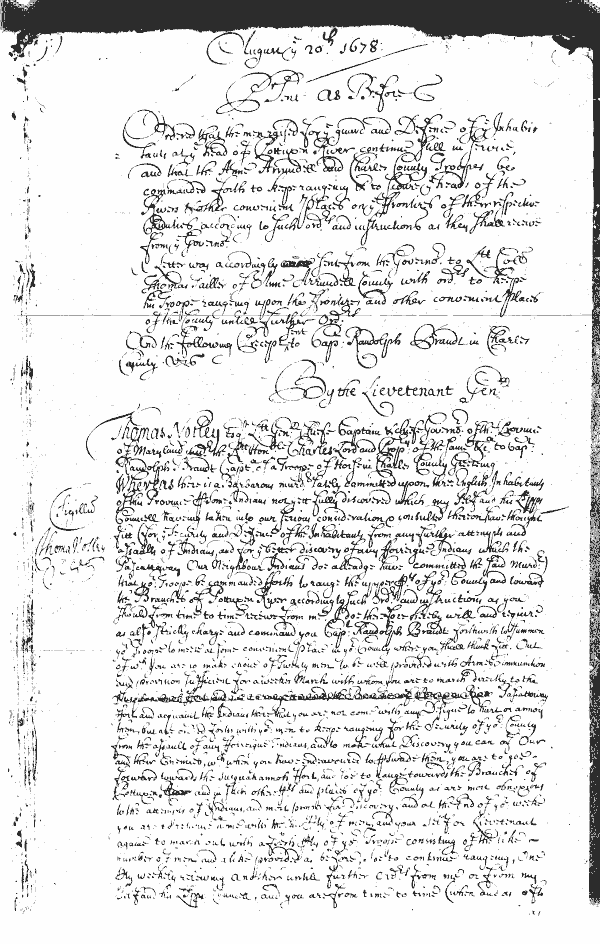 August yᵉ 20th 1678
Prsent as Before
Ordered that the men raised for yᵉ guard and Defence of yᵉ Inhabi
tants at yᵉ head of Pottuxen River continue still in service
and that the Anne Arrundell and Charles County Troopes be
commanded forth to keepe rangeing & to scoure yᵉ heads of the
Rivers & other convenient Places on yᵉ ffrontiers of their respective
Counties according to such ordrs and instructions as they shall receive
from yᵉ Governor
Letter was accordingly sent from the Governor to Ltt Collo
Thomas Tailler of Anne Arrundell County with ordrs to keepe
his Troope rangeing upon the ffrontiers and other convenient Places
of the County untill further Ordr
And the following Precept sent to Capt Randolph Brandt in Charles
County Vizt
By the Lievetenant Genll
Thomas Notley Esqr Ltt Genll Chiefe Captain & chiefe Governor of the Province
of Maryland under the Rt Honble Charles Lord and Propry of the same &ca to Capt
Randolph Brandt Capt of a Troope of Horse in Charles County Greeting
Whereas there is a barbarous murder lately committed upon three English Inhabitants
of this Province by some Indians not yett fully discovered which my Selfe and his Lopps
Councell haveing taken into our serious consideration & consulted thereon have thought
fitt for yᵉ Security and Defence of the Inhabitants from any further attempts and
assaults of Indians, and for yᵉ better discovery of any fforreigne Indians which the
Pascattoway Our Neighbour Indians doe alleadge have committed the said Murder
that yoʳ Troope be commanded forth to range the upper pts of yoʳ County and toward
the Branches of Pottuxen River according to such Ordrs and instructions as you
should from time to time receive from me I doe therefore hereby will and require
as also strictly charge and command you Capt Randolph Brandt forthwith to summon
yoʳ Troope to meete at some convenient Place in yoʳ County where you shall think fitt. Out
of wch you are to make choice of twenty men to be well provided with Armes Ammunition
and provision sufficient for a weekes March with whom you are to march directly to the
Pascattoway
ffort and acquaint the Indians there that you are not come with any Designe to hurt or annoy
them, but are ordrd forth with yoʳ men to keepe rangeing for the Security of yoʳ County
from the assault of any fforreigne Indians, and to make what Discovery you can of Our
and their Enemies, wch when you have endeavoured to pswade them, you are to goe
forward towards the Susquahannoh ffort, and soe to range towards the Branches of
Pottuxen, and in such other pts and places of yoʳ County as are most obnoxious
to the attempts of Indians, and most probable for Discovery, and at the End of yᵉ weeke
you are to relieve and your Selfe or Lieutenant
againe to march out with a fresh pty of yoʳ Troope consisting of the like
number of men and alike provided as before, soe to continue rangeing, One
pty weekely relieving another untill further Ordrs from me or from my
Selfe and his Lopps Councell, and you are from time to time (when and as often
Sigillum
Thomas Notley